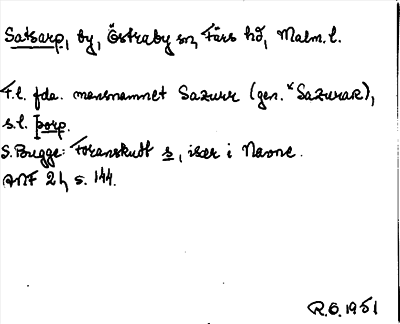 Satsarp, by, Östraby sn, Färs hd, Malm. l.
F.l. fda. mansnamnet Sazurr (gen. *Sazurar),
s.l. þorp.
S. Bugge: Foranskudt s, især i Navne.
ANF 21, s. 144.
R.O. 1951